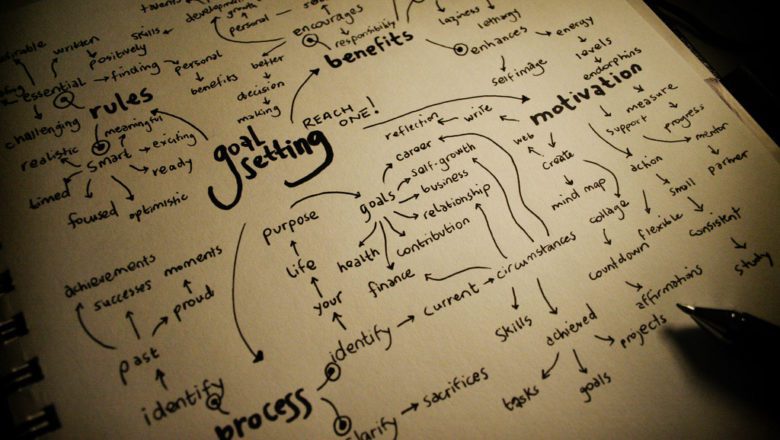 talents
development
growth
personal
skills
written
positively
essential
finding
personal
benefits
rules
challenging
meaningful
realistic
smart
exciting
ready
timed
focused
optimistic
encourages
responsibility
benefits
better
decision
making
laziness
lethargy
enhances
self image
energy
levels
endorphins
goal
setting
REACH
ONE!
motivation
reflection
write
web
create
mind map
collage
support
measure
progress
mentor
partner
action
small
flexible
consistent
study
countdown
affirmations
projects
purpose
life
your
identify
goals
career
self-growth
business
relationship
contribution
health
finance
current
circumstances
skills
achieved
tasks
goals
achievements
successes
moments
proud
past
identify
process
clarify
sacrifices